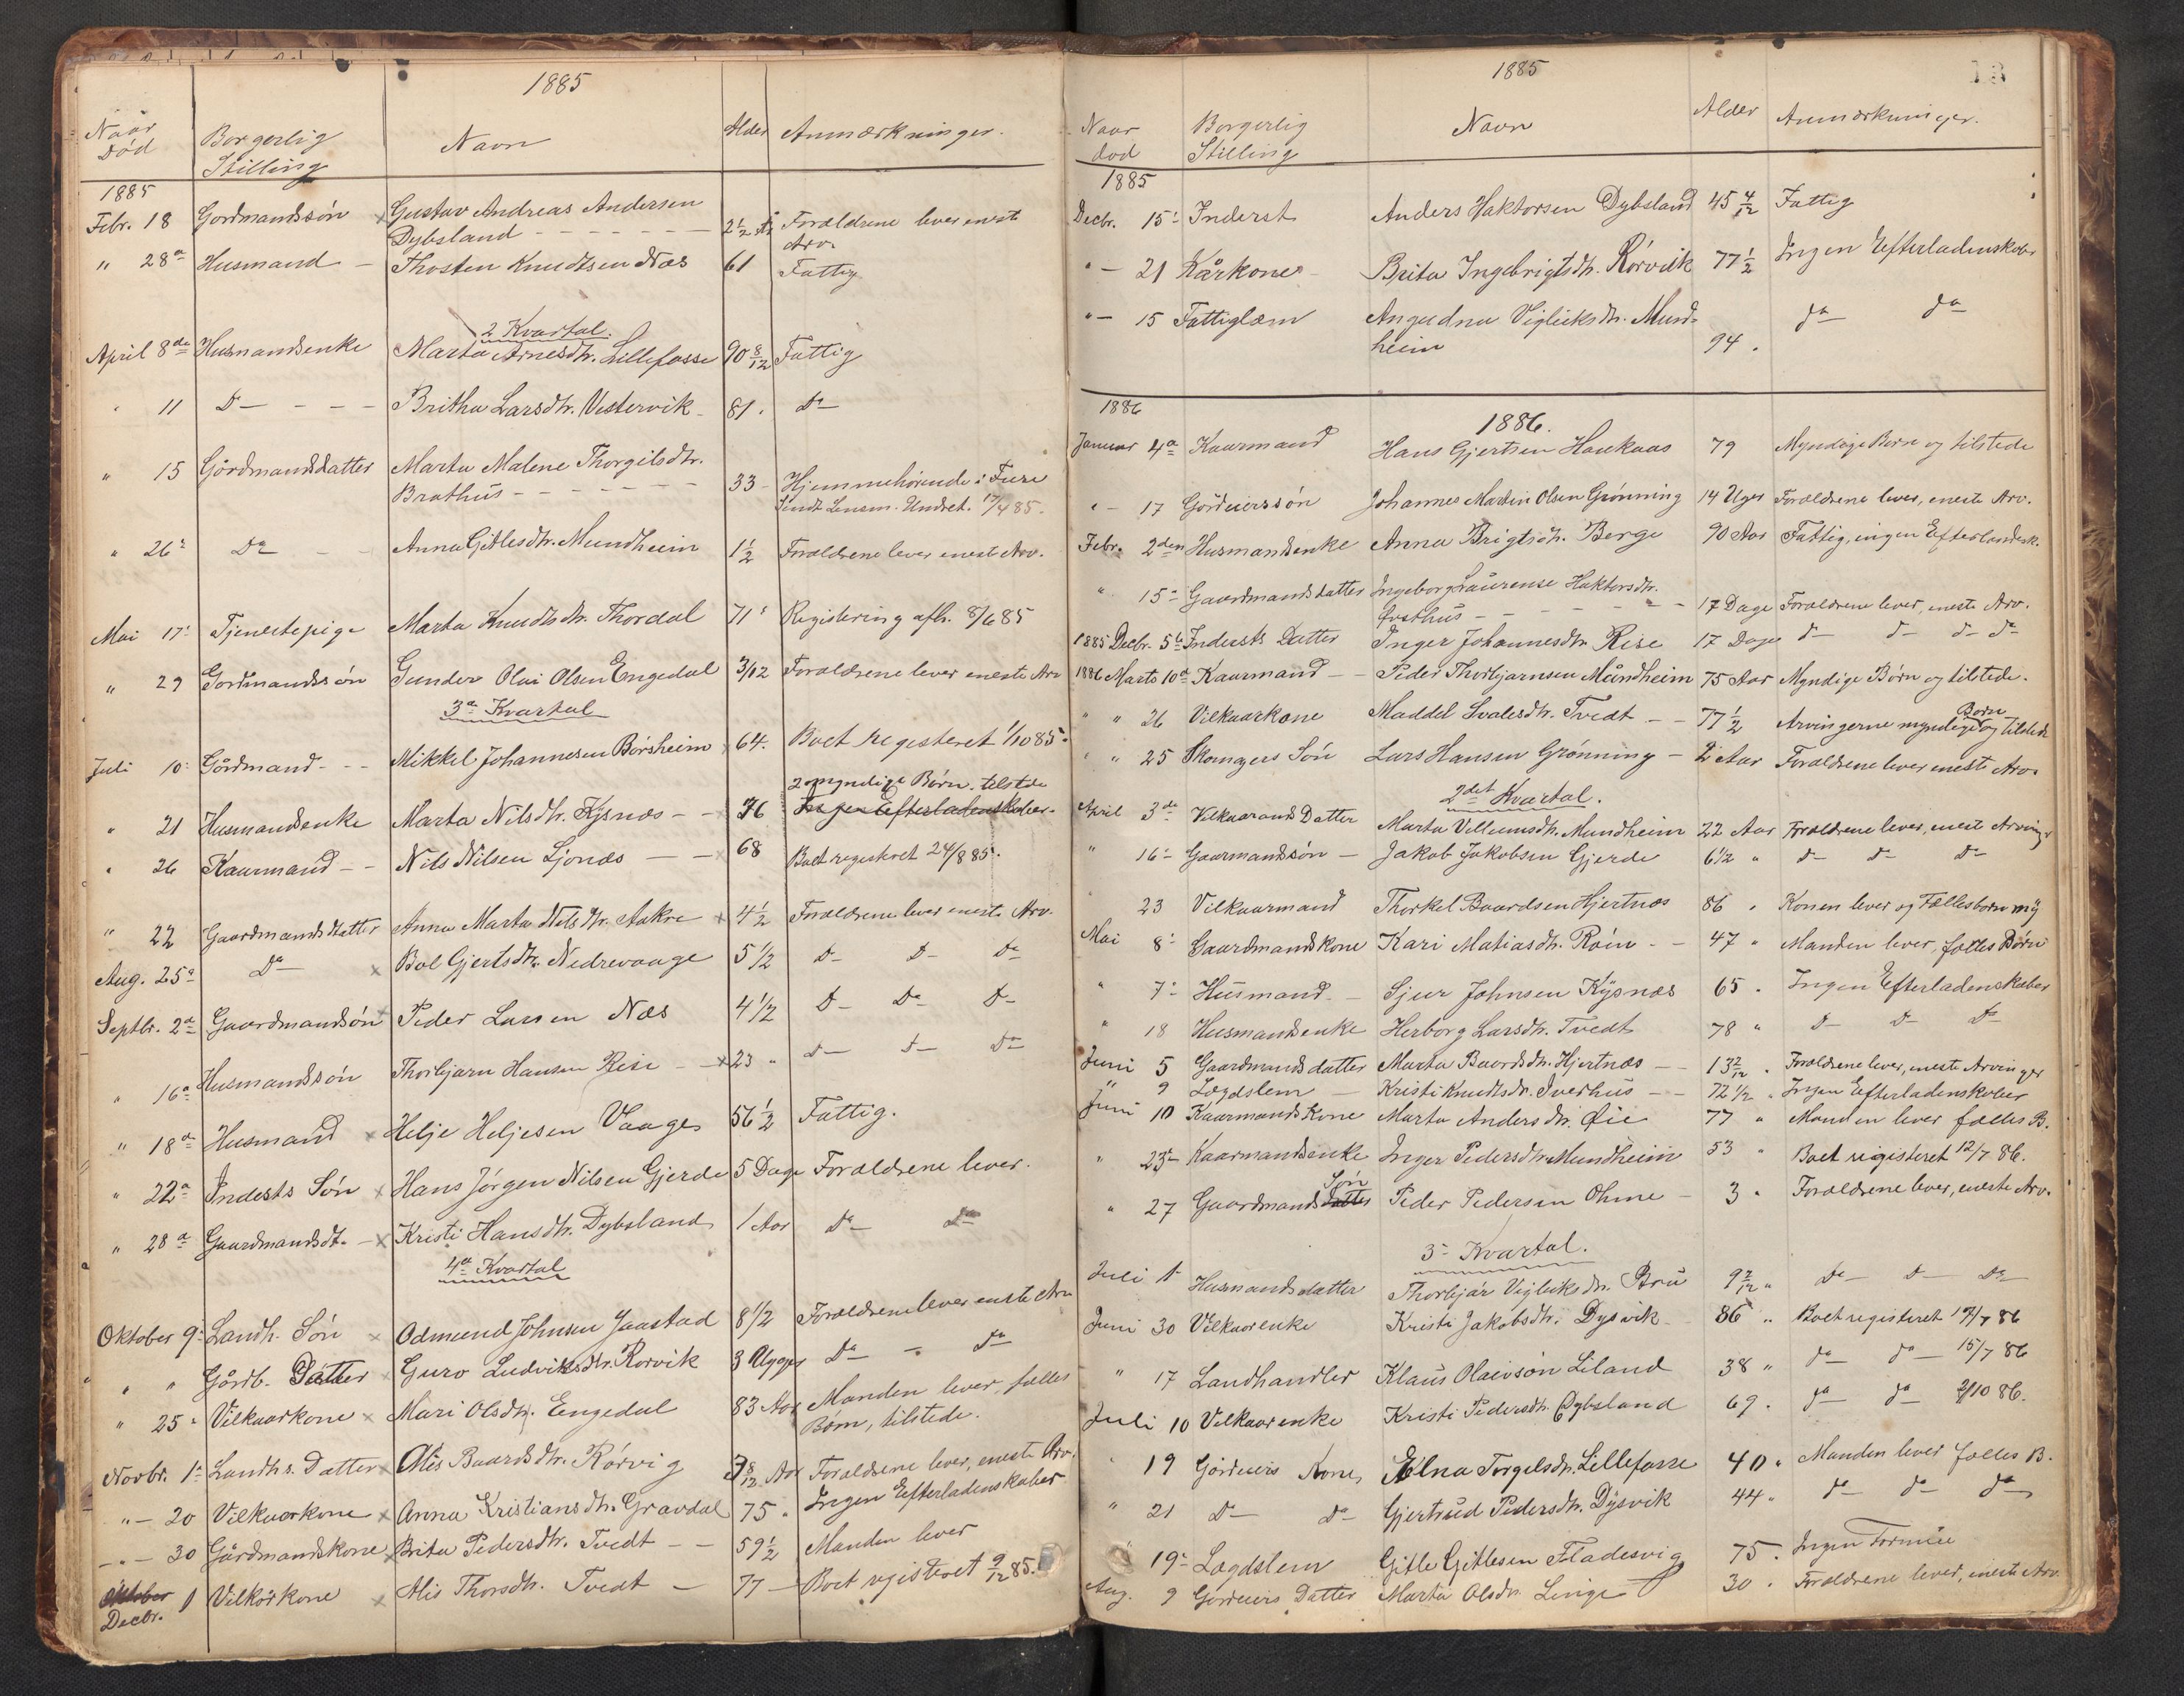 1885
Naar Død Borgerlig Stilling Navn Alder Anmærkninger.
1885
Febr. 18 Gordmandssøn Gustav Andreas Andersen
Dybsland - - - - - - 2 1/2 Forældrene lever eneste Arv.
" 28de Husmand - Thosten Knudtsen Næs 61 Fattig
2 Kvartal.
April 8de Husmandsenke Marta Arnesdtr. Lillefosse 90 8/12 Fattig
" 11 Do - - - Britha Larsdtr. Vestervik - 81. Do
" 15 Gårdmandsdatter Marta Malene Thorgilsdtr.
Brathus - - - - - - 33 - Hjemmehørende i Fuse
Sendt Lensm. Undret. 17/4 85.
" 26 Do - - Anna Gitlesdtr. Mundheim 1 1/2 Forældrene lever eneste Arv.
Mai 17 Tjenestepige Marta Knudtsdtr. Thordal 71 Registering afh. 8/6 85
" 29 Gordmandssøn Gunder Olai Olsen Engedal 3/12 Forældrene lever eneste Arv
3de Kvartal
Juli 10 Gårdmand - - - Mikkel Johannesen Børsheim 64. Boet registeret 1/10 85.
2 myndige Børn. tilstede
" 21 Husmandsenke Marta Nilsdtr. Kysnæs - - 76 Ingen Efterladenskaber.
" 26 Kaarmand - - Nils Nilsen Ljonæs - - 68 Boet registeret 24/8 85.
" 22 Gaardmandsdatter Anna Marta Nilsdtr. Aakre x 4 1/2 Forældrene lever eneste Arv.
Aug. 25de Do x Bol Gjertsdtr. Nedrevaage 5 1/2 Do Do Do
Septbr. 2de Gaardmandsøn x Peder Larsen Næs 4 1/2 Do Do Do
" 16de Husmandssøn Thorbjørn Hansen Rise - x 23 " Do Do Do
" 18de Husmand x Helje Heljesen Vaage 56 1/2 Fattig.
" 22de Indests Søn x Hans Jørgen Nilsen Gjerde 5 Dage Forældrene lever.
" 28de Gaardmandsdt. - x Kristi Hansdtr. Dybsland 1 Aar Do Do
4de Kvartal
Oktober 9 Landh. Søn x Odmund Johnsen Jaastad 8 1/2 Forældrene lever eneste Arv
" " Gårdb. Datter x Guro Ludviksdtr. Rørvik 3 Uger Do - Do
" 25 Vilkaarkone x Mari Olsdtr. Engedal 83 Aar Manden lever, fælles
Børn, tilstede.
Novbr. 1 Landhs. Datter x Alis Baardsdtr. Rørvig 3 8/12 Aar Forældrene lever, eneste Arv.
" - 20 Vilkaarkone x Anna Kristiansdtr. Gravdal 75. Ingen Efterladenskaber
- " - 30 Gårdmandskone x Brita Pedersdtr. Tvedt - - 59 1/2 Manden lever
Oktober
Decbr. 1 Vilkårkone x Alis Thorsdtr. Tvedt - 77 - Boet registeret 9/12 85.
1885
Naar død Borgerlig Stilling Navn Alder Anmærkninger.
1885
Decbr. 15 Inderst Anders Haktorsen Dybsland 45 4/12 Fattig
" - 21 Kårkone - Brita Ingebrigtsdtr. Rørvik 77 1/2 Ingen Efterladenskaber
" - 15 Fattiglem Angudna Vigleiksdtr. Mund-
heim 94. Do Do
1886
1886.
Januar 4de Kaarmand Hans Gjertsen Haukaas 79 Myndige Børn og tilstede
" - 17 Gårdeierssøn Johannes Martin Olsen Grønning 14 Uger Forældrene lever, eneste Arv.
Febr. 2den Husmandsenke Anna Brigtsdtr. Berge 90 Aar Fattig, ingen Efterladensk.
" 15 Gaardmandsdatter Ingeborg Laurense Haktorsdtr.
- - - - - 17 Dage Forældrene lever, eneste Arv.
1885 Decbr. 5te Indersts Datter Inger Johannesdtr. Rise 17 Dage Do Do Do Do
1886 Marts 10de Kaarmand - - Peder Thorbjørnsen Mundheim 75 Aar Myndige Børn og tilstede.
" " 26 Vilkaarkone Maddel Svalesdtr. Tvedt - - 77 1/2 Arvingerne myndige Børn og tilstede
" " 25 Skomagers Søn Lars Hansen Grønning - 2 Aar Forældrene lever eneste Arv.
2det Kvartal.
April 3de Vilkaarmands Datter Marta Villumsdtr. Mundheim 22 Aar Forældrene lever, eneste Arvinger
" 16 Gaarmandssøn - Jakob Jakobsen Gjerde 6 1/2 " Do Do Do
23 Vilkaarmand Thorkel Baardsen Hjertnæs 86 " Konen lever og Fællesbørn myg
Mai 8 Gaardmandskone Kari Matiasdtr. Røen - - 47 " Manden lever, fælles Børn
" 7 Husmand - - Sjur Johnsen Kysnæs 65. Ingen Efterladenskaber
" 18 Husmandsenke Herborg Larsdtr. Tvedt 78 " Do Do Do
Juni 5 Gaardmandsdatter Marta Baardsdtr. Hjertnæs - - 13 2/12. Forældrene lever, eneste Arvinger
" 9 Lægdslem - Kristi Knudtsdtr. Tverhus - - 72 1/2 " Ingen Efterladenskaber
Juni 10 Kaarmands Kone Marta Andersdtr. Øie 77 " Manden lever fælles B.
" 23 Kaarmandsenke Inger Pedersdtr. Mundheim 53 " Boet registeret 12/7 86.
" 27 Gaardmands Datter Søn Peder Pedersen Ohme - 3 " Forældrene lever, eneste Arv.
3 Kvartal.
Juli 1 Husmandsdatter Thorbjør Vigleiksdtr. Bru 9 2/12 " Do Do Do
Juni 30 Vilkaarenke Kristi Jakobsdtr. Dysvik 86 " Boet registeret 12/7 86
" 17 Landhandler Klaus Olaivsøn Liland 38 " Do Do 15/7 86
Juli 10 Vilkaarenke Kristi Pedersdtr. Dybsland 69. Do Do 2/10 86.
" 19 Gårdeiers Kone Elna Torgelsdtr. Lillefosse 40 " Manden lever fælles B.
" 21 Do Do Gjertrud Pedersdtr. Dysvik 44 " Do Do Do
19 Lægdslem Gitle Gitlesen Fladesvig 75. Ingen Formue
Aug. 9 Gårdeiers Datter Marta Olsdtr. Linge 30. Forældrene lever, eneste Arv.